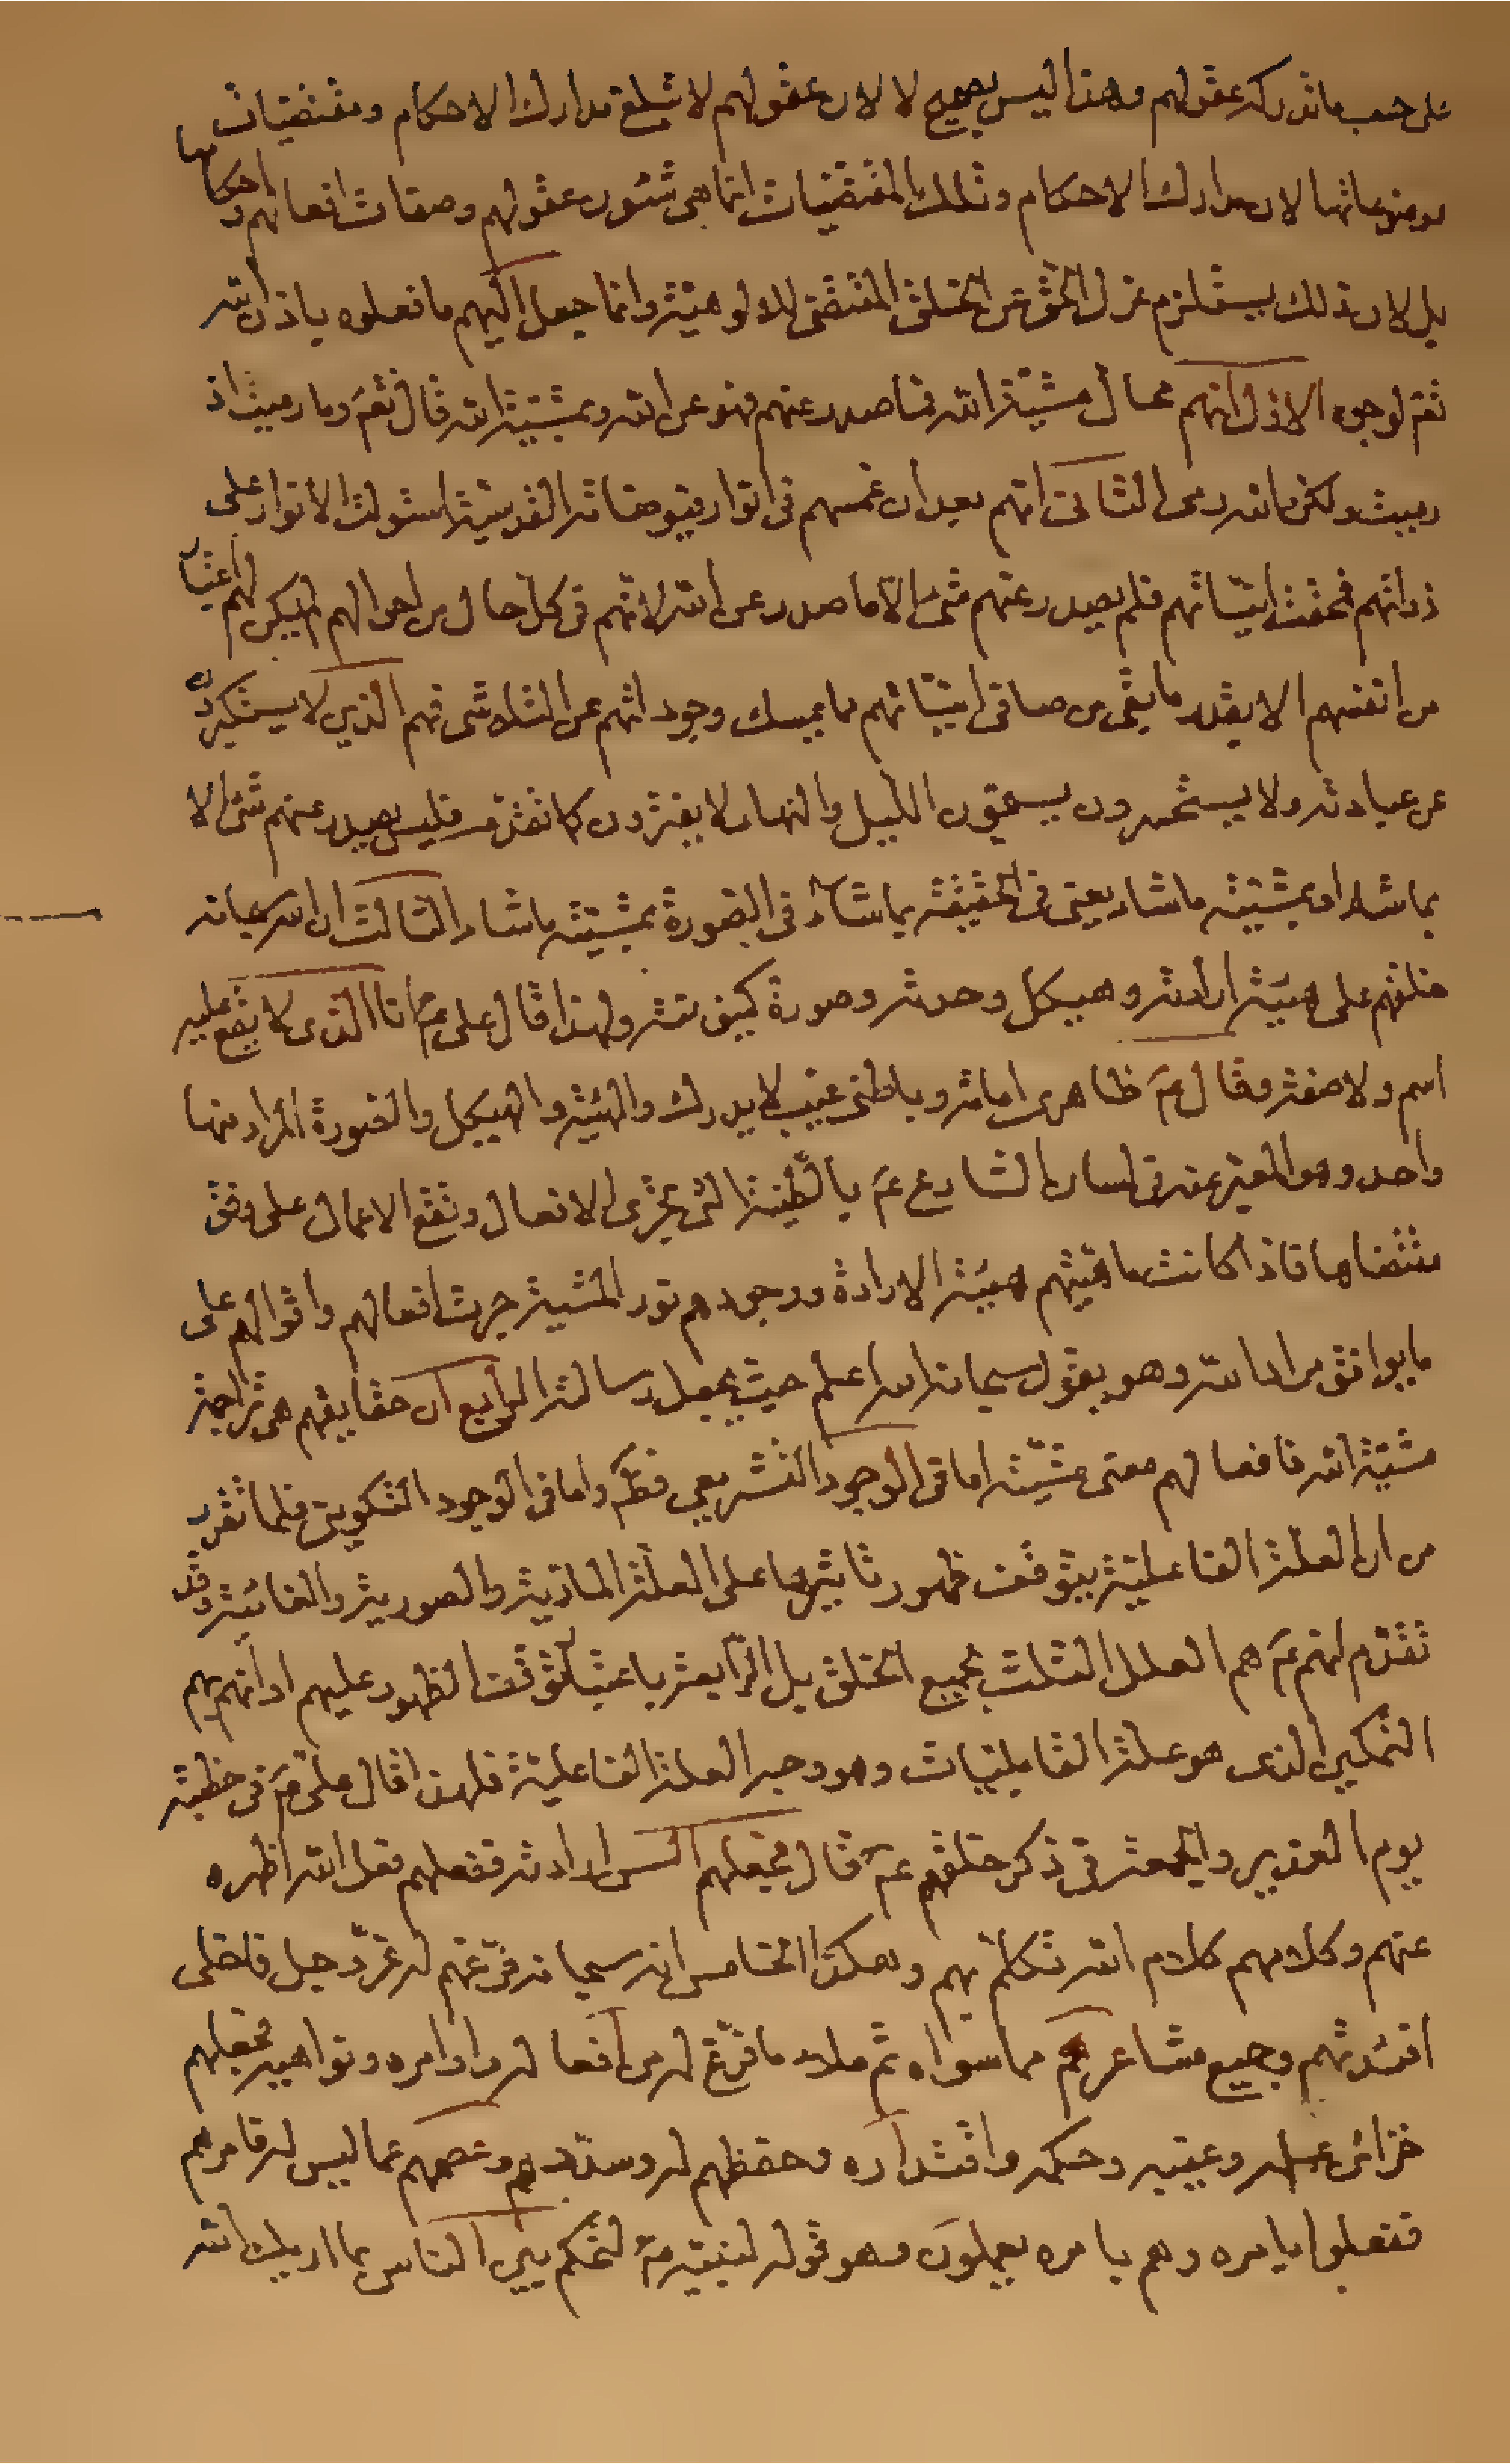 على حسب ما تدركه عقولهم وهذا ليس بصحيح لا لان عقولهم لا تبلغ مدارك الاحكام ومقتضيات احكامها
موضوعاتها لان مدارك الاحكام وتلك المقتضيات انما هى شئون عقولهم وصفات افعالهم و
بل لان ذلك يستلزم عزل الحق عن الخلق المقتضى للالوهيته وانما جعل اليهم ما فعلوه باذن الله
ثم لوجوه الاول انهم محال مشيّة الله فما صدر عنهم فهو عن الله وبمشيّة الله قال تعم وما رميت اذ
رميت ولكن الله رمى الثانى انهم بعد ان غمسهم فى انوار قيوميته القدسيّة استولت الأنوار على
ذواتهم فمحقت انيّاتهم فلم يصدر عنهم شئ الّا ما صدر عن الله لأنهم فى كل حال من احوالهم لم يكن لهم اعتبار
من انفسهم الا بقدر ما بقى من صافى انيّاتهم مما يمسك وجوداتهم عن التلاشى فهم الذين لا يستكبرون
عن عبادته ولا يستحسرون يسبّحون الليل والنهار لا يفترون كما تقدّم فليس يصدر عنهم شئ الا
بما شاء او بمشيّته ما شاء يعنى فى الحقيقة بما شاء فى الصورة بمشيّته ما شاء الثالث ان الله سبحانه
خلقهم على هيئة ارادته وهيكل وحدته وصورة كينونته ولهذا قال على عم انا الذى لا يقع عليه
اسم ولا صفة وقال عم ظاهرى امامة وباطنى غيب لا يدرك والهيئة والهيكل والصورة المراد منها
واحد وهو المعبّر عنه فى لسان الشارع عم بالطّينة التى تجرى الافعال وتقع الاعمال على وفق
مقتضاها فاذا كانت ماهيتهم هيئة الارادة ووجودهم نور المشية جرت افعالهم واقوالهم على
ما يوافق مراد الله وهو بقول سبحانه الله اعلم حيث يجعل رسالته الرابع ان حقايقهم هى تراجمة
مشيّة الله فافعالهم معنى مشيّته اما فى الوجود التشريعى فظهر واما فى الوجود التكوينى فلما تقرر
من ان العلّة الفاعليّة يتوقف ظهور تاثيرها على العلّة المادّية والصورية والغائية وقد
تقدّم انهم عم هم العلل الثلث لجميع الخلق بل الرّابعة باعتبار توقف الظهور عليهم اذ انهم بهم
التمكين الذى هو علة القابليات وهو وجه العلة الفاعليّة فلهذا قال على عم فى خطبة
يوم الغدير والجمعة فى ذكر خلقهم عم قال فجعلهم السن ارادته ففعلهم فعل الله اظهره
عنهم وكلامهم كلام الله تكلّم بهم وهكذا الخامس انه سبحانه فرّغهم له عزّ وجل فاخلى
افئدتهم وجميع مشاعرهم مما سواه ثم ملاء ما فرّغ له من افعاله واوامره ونواهيه فجعلهم
خزائن علمه وغيبه وحكمه واقتداره وحفظهم له وسدّدهم وعصمهم عما ليس له فامرهم
ففعلوا بامره وهم بامره يعملون وهو قوله لنبيّه ص لتحكم بين الناس بما اريك الله